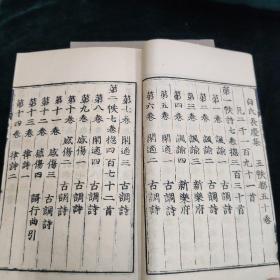 白氏長慶集 五秩都五十卷
凡二千一百九十一首
第一秩詩七卷揔三百 首
第一卷 諷諭一 古調詩
第二卷 諷諭二 古調詩
第三卷 諷諭三 新樂府
第四卷 諷諭四 新樂府
第五卷 閑適一 古調詩
第六卷 閑適二 古調詩
第七卷 閑適三 古調詩
第二秩七卷揔四百七十二首
第八卷 閑適四 古調詩
第九卷 感傷一 古調詩
第十卷 感傷二 古調詩
第十一卷 感傷三 古調詩
第十二卷 感傷四 謌行曲引
第十三卷 律詩一
第十四卷 律詩